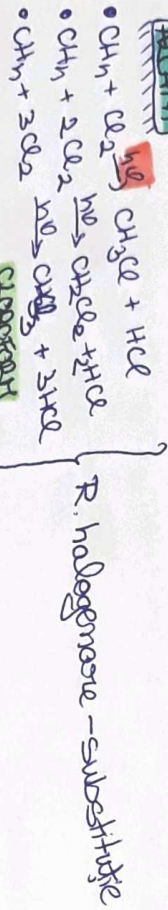 • CH₄ + Cl₂ hν→ CH₃Cl + HCl
• CH₄ + 2Cl₂ hν→ CH₂Cl₂ + 2HCl
• CH₄ + 3Cl₂ hν→ CHCl₃ + 3HCl
R. halogenare - substituție